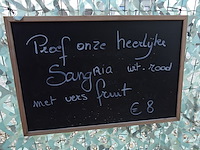 Proef onze heerlijke
Sangria wit-rood
met vers fruit
€ 8